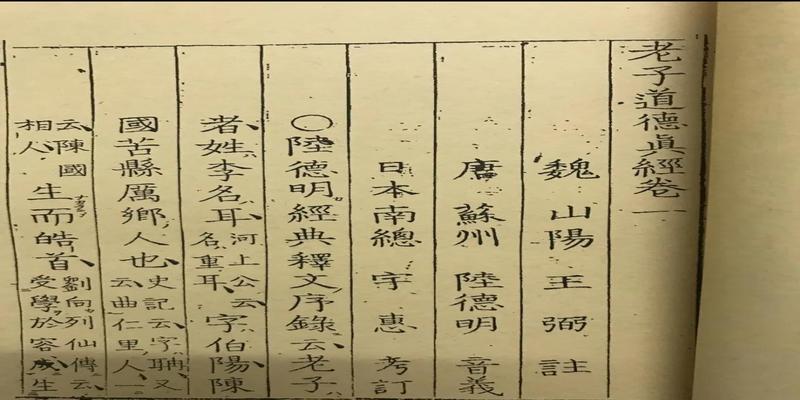 老子道德眞經卷一
魏 山陽 王 弼 註
唐 蘇州 陸德明 音義
日本南總 宇 惠 考訂
○陸德明經典釋文序錄云老子
者姓李名耳河上公云名重耳字伯陽陳
國苦縣厲鄉人也史記云字聃又云曲仁里人一
云陳國相人生而皓首劉向列仙傳云受學於容成生